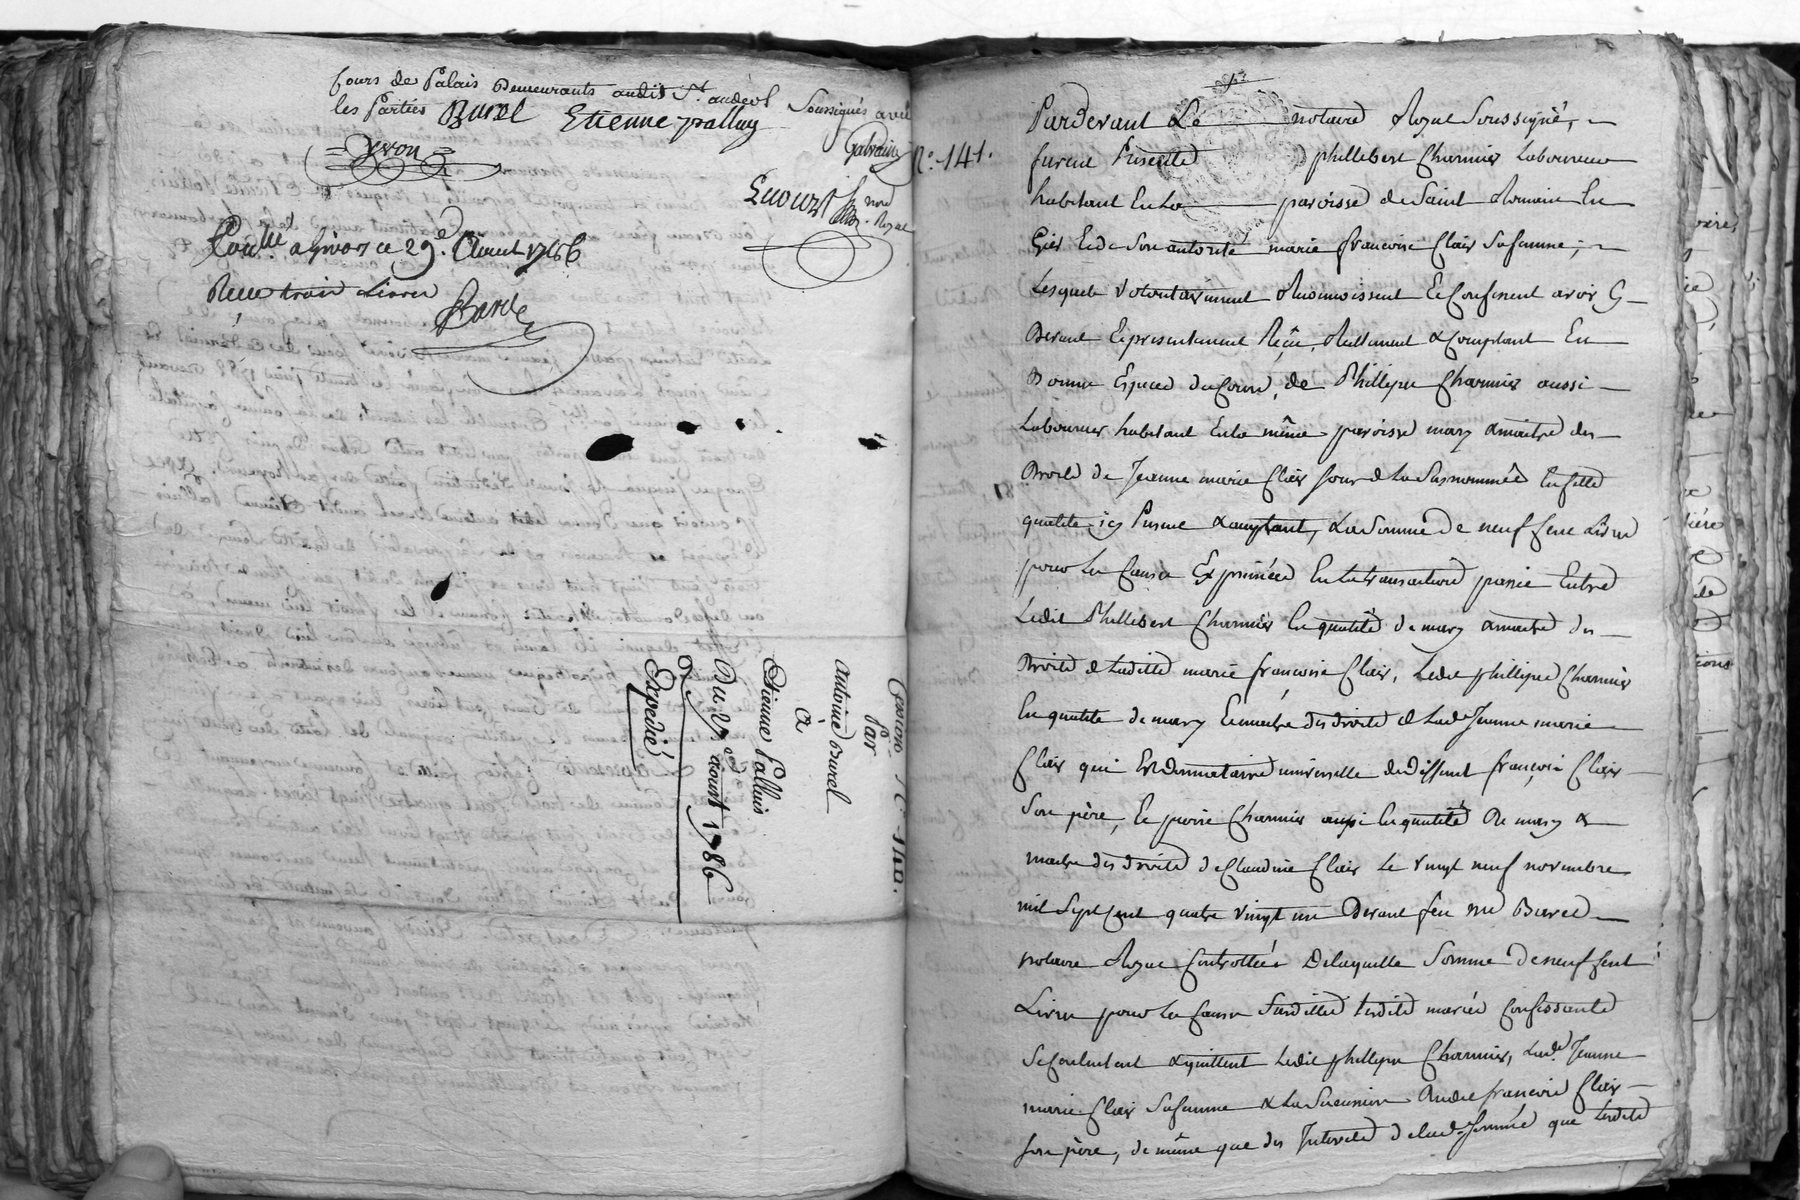 Cours de Palais Demeurants audit St. andéol Soussignés avec
les Parties Burel Etienne palluy
Yvon
Galvain
Enouvst
nore
Royal
Con.lé a givors ce 29.e Aoust 1786
Reçu trois Livres
Barde
Cession N.° 140.
Par
antoine Burel
à
Etienne Palluis
Du 27 aoust 1786
Expedié
N.° 141.
Pardevant Le notaire Royal Soussigné,
furent Presents phillebert Charmier Laboureur
habitant En la paroisse de Saint Romain En
Gier Et de Son autorité marie francoise Clair Sa femme,
Lesquels volontairement Reconnoissent Et Confessent avoir Cy
Devant Et presentement Reçu, Reellement & Comptant En
Bonne Espece du Cours, de Phillippe Charmier aussi
Laboureur habitant En la même paroisse mary & maitre des
Droits de Jeanne marie Clair Soeur de La Susnommée En cette
qualité icy Present & acceptant, La Somme de neuf Cent Livres
pour les Causes Exprimées En la transaction passée Entre
Ledit Phillebert Charmier En qualité de mary & maitre des
Droits de Laditte marie francoise Clair, Ledit phillippe Charmier
En qualité de mary Et maitre des droits de Lad.e Jeanne marie
Clair qui Est donnataire universelle de deffunt françois Clair
Son père, Et pierre Charmier aussi En qualité De mary &
maitre des droits de Claudine Clair Le vingt neuf novembre
mil Sept Cent quatre vingt un Devant feu me Burel
notaire Royal Controllée, De laquelle Somme de neuf Cent
Livres pour les Causes Susdittes Lesdits mariés Confessants
Se Contentent & quittent Ledit phillippe Charmier, Lad.e Jeanne
marie Clair Sa femme & La Succession Dudit francois Clair
Son père, de même que des Interets de Lad. Somme que Lesdits